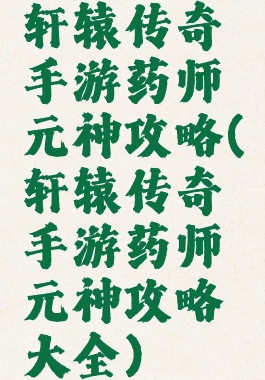 轩辕传奇
手游药师
元神攻略(
轩辕传奇
手游药师
元神攻略
大全)